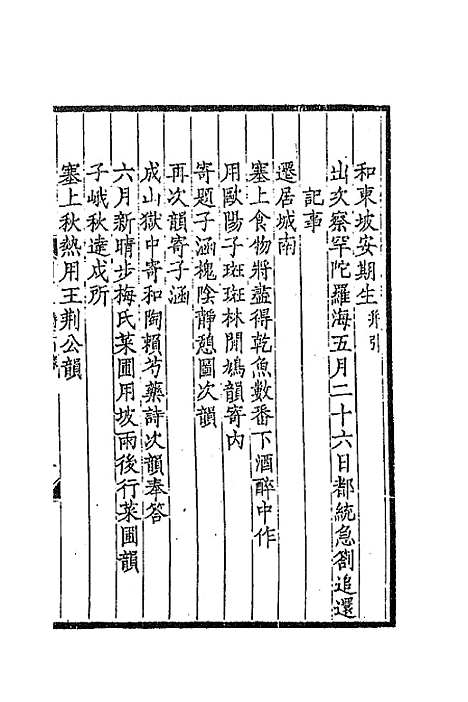 和東坡安期生并引
出次察罕陀羅海五月二十六日都統急劄追還
記事
遷居城南
塞上食物將盡得乾魚數番下酒醉中作
用歐陽子斑斑林間鳩韻寄內
寄題子涵槐陰靜憩圖次韻
再次韻寄子涵
成山獄中寄和陶賴芍藥詩次韻奉答
六月新晴步梅氏菜圃用坡雨後行菜圃韻
子峨秋達戍所
塞上秋熱用王荊公韻